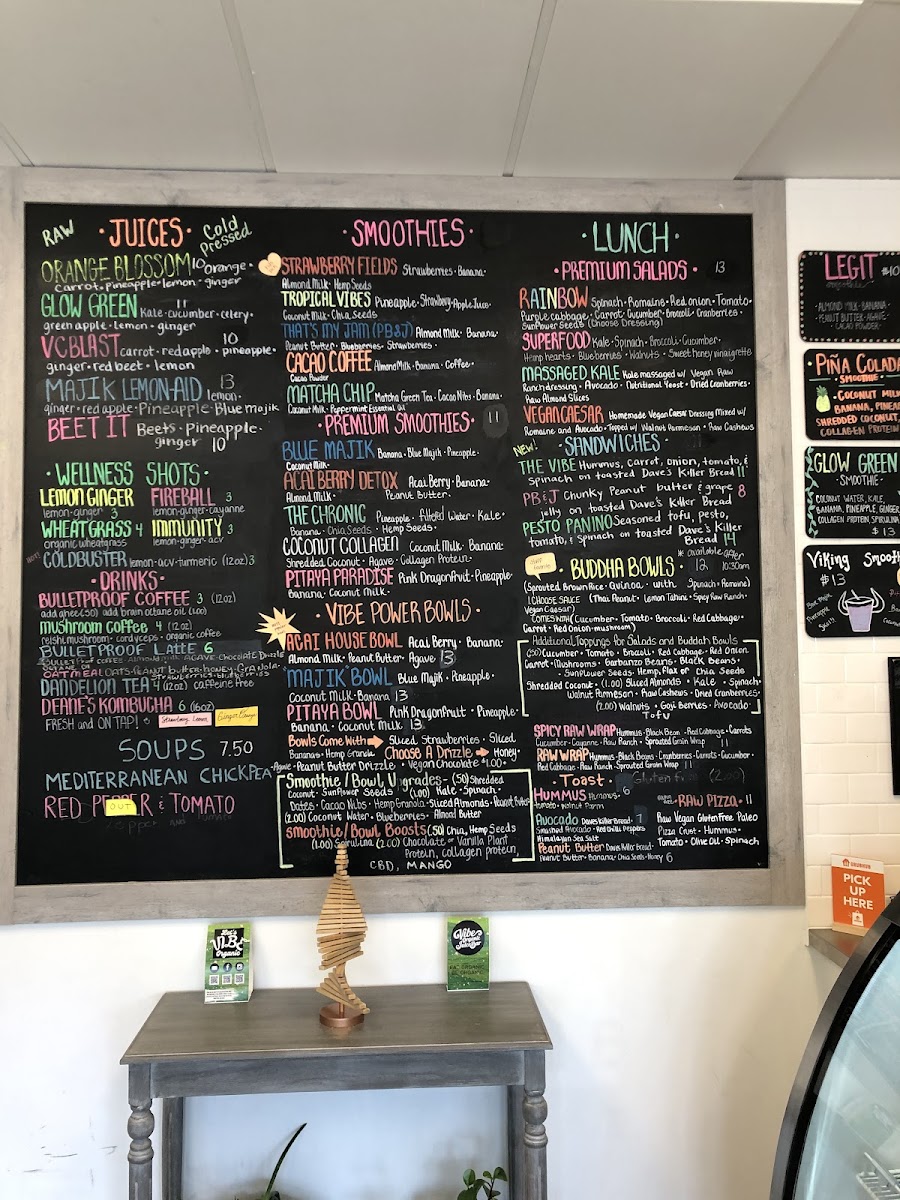 RAW
· JUICES ·
Cold Pressed
ORANGE BLOSSOM 10 orange ·
carrot · pineapple · lemon · ginger
GLOW GREEN 11 Kale · cucumber · celery ·
green apple · lemon · ginger
VC BLAST carrot · red apple · pineapple · 10
ginger · red beet · lemon
MAJIK LEMON-AID 13 lemon ·
ginger · red apple · Pineapple · Blue majik
BEET IT Beets · Pineapple ·
ginger 10
· WELLNESS SHOTS ·
LEMON GINGER FIREBALL 3
lemon · ginger 3 lemon · ginger · cayanne
WHEATGRASS 4 IMMUNITY 3
organic wheatgrass lemon · ginger · acv
COLDBUSTER lemon · acv · turmeric (12oz) 3
· DRINKS ·
BULLETPROOF COFFEE 3 (12oz)
add ghee (.50) add brain octane oil (1.00)
MUSHROOM COFFEE 4 (12oz)
reishi mushroom · cordyceps · organic coffee
BULLETPROOF LATTE 6
OATMEAL OATS · PEANUT butter · honey · Granola ·
DANDELION TEA 4 (12oz) caffeine free
DEANE'S KOMBUCHA 6 (16oz)
FRESH and ON TAP!
Strawberry Lemon
SOUPS 7.50
MEDITERRANEAN CHICKPEA
RED PEPPER & TOMATO
OUT
· SMOOTHIES ·
STRAWBERRY FIELDS Strawberries · Banana ·
Almond Milk · Hemp Seeds
TROPICAL VIBES Pineapple · Strawberry · Apple Juice ·
Coconut Milk · Chia Seeds
THAT'S MY JAM (PB&J) Almond Milk · Banana ·
Peanut Butter · Blueberries · Strawberries ·
CACAO COFFEE Almond Milk · Banana · Coffee ·
Cacao Powder
MATCHA CHIP Matcha Green Tea · Cacao Nibs · Banana
Coconut Milk · Peppermint Essential Oil
· PREMIUM SMOOTHIES · 11
BLUE MAJIK Banana · Blue Majik · Pineapple ·
Coconut Milk ·
ACAI BERRY DETOX Acai Berry · Banana ·
Almond Milk · Peanut Butter ·
THE CHRONIC Pineapple · Filtered Water · Kale ·
Banana · Chia Seeds · Hemp Seeds ·
COCONUT COLLAGEN Coconut Milk · Banana ·
Shredded Coconut · Agave · Collagen Protein ·
PITAYA PARADISE Pink Dragonfruit · Pineapple ·
Banana · Coconut Milk ·
· VIBE POWER BOWLS ·
ACAI HOUSE BOWL Acai Berry · Banana ·
Almond Milk · Peanut Butter · Agave 13
MAJIK BOWL Blue Majik · Pineapple ·
Coconut Milk · Banana 13
PITAYA BOWL Pink Dragonfruit · Pineapple ·
Banana · Coconut Milk 13
Bowls Come With Sliced Strawberries · Sliced
Banana · Hemp Granola · Choose A Drizzle Honey ·
Agave · Peanut Butter Drizzle · Vegan Chocolate $1.00 ·
Smoothie / Bowl, Upgrades - (.50) Shredded
Coconut · Sunflower Seeds · (1.00) Kale · Spinach ·
Dates · Cacao Nibs · Hemp Granola · Sliced Almonds · Peanut Butter
(2.00) Coconut Water · Blueberries · Almond Butter
Smoothie / Bowl Boosts (.50) Chia, Hemp Seeds
(1.00) Spirulina (2.00) Chocolate or Vanilla Plant
Protein, collagen protein,
CBD, MANGO
· LUNCH ·
· PREMIUM SALADS · 13
RAINBOW Spinach · Romaine · Red onion · Tomato ·
Purple cabbage · Carrot · Cucumber · Broccoli · Cranberries ·
Sunflower Seeds (Choose Dressing)
SUPERFOOD Kale · Spinach · Broccoli · Cucumber ·
Hemp hearts · Blueberries · Walnuts · Sweet honey vinaigrette
MASSAGED KALE Kale massaged w/ Vegan Raw
Ranch dressing · Avocado · Nutritional Yeast · Dried Cranberries ·
Raw Almond Slices
VEGAN CAESAR Homemade Vegan Caesar Dressing Mixed w/
Romaine and Avocado · Topped w/ Walnut Parmesan · Raw Cashews
NEW!
· SANDWICHES ·
THE VIBE Hummus, carrot, onion, tomato, &
spinach on toasted Dave's Killer Bread 11
PB & J Chunky Peanut butter & grape 8
jelly on toasted Dave's Killer Bread
PESTO PANINO Seasoned tofu, pesto,
tomato, & spinach on toasted Dave's Killer
Bread 14
· BUDDHA BOWLS · 12 * available after 10:30am
(Sprouted Brown Rice · Quinoa · with Spinach · Romaine)
1 CHOOSE SAUCE (Thai Peanut · Lemon Tahini · Spicy Raw Ranch ·
Vegan Caesar)
COMES WITH (Cucumber · Tomato · Broccoli · Red Cabbage ·
Carrot · Red Onion · mushroom)
Additional Toppings for Salads and Buddah Bowls
(.50) Cucumber · Tomato · Broccoli · Red Cabbage · Red Onion
Carrot · Mushrooms · Garbanzo Beans · Black Beans ·
Sunflower Seeds · Hemp, Flax or Chia Seeds
Shredded Coconut · (1.00) Sliced Almonds · Kale · Spinach ·
Walnut Parmesan · Raw Cashews · Dried Cranberries ·
(2.00) Walnuts · Goji Berries · Avocado ·
Tofu
SPICY RAW WRAP Hummus · Black Bean · Red Cabbage · Carrots
Cucumber · Cayanne · Raw Ranch · Sprouted Grain Wrap 11
RAW WRAP Hummus · Black Beans · Cranberries · Carrots · Cucumber ·
Red Cabbage · Raw Ranch · Sprouted Grain Wrap 11
· Toast · Gluten free (2.00)
HUMMUS 6
RAW PIZZA · 11
Avocado Daves Killer Bread · 7
Smashed Avocado · Red Chili Peppers
Himalayan Sea Salt
Peanut Butter Daves Killer Bread ·
Peanut Butter · Banana · Chia Seeds · Honey 6
Raw Vegan Gluten Free Paleo
Pizza Crust · Hummus ·
Tomato · Olive Oil · Spinach
LEGIT $10
smoothie
· ALMOND MILK · BANANA ·
PEANUT BUTTER · AGAVE ·
CACAO POWDER ·
PIÑA COLADA
· SMOOTHIE ·
· COCONUT MILK
BANANA, PINEAP
SHREDDED COCONUT,
COLLAGEN PROTEIN
GLOW GREEN
· SMOOTHIE ·
COCONUT WATER, KALE,
BANANA, PINEAPPLE, GINGER,
COLLAGEN PROTEIN, SPIRULINA
$13
Viking Smooth
$13
PICK
UP
HERE
Let's
VIBE
Organic
Vibe
Organic
Juice Bar